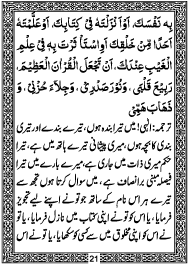 بِهٖ نَفْسَكَ، اَوْ اَنْزَلْتَهٗ فِيْ كِتَابِكَ، اَوْ عَلَّمْتَهٗ
اَحَدًا مِّنْ خَلْقِكَ اَوِ اسْتَأْثَرْتَ بِهٖ فِيْ عِلْمِ
الْغَيْبِ عِنْدَكَ، اَنْ تَجْعَلَ الْقُرْاٰنَ الْعَظِيْمَ،
رَبِيْعَ قَلْبِيْ، وَنُوْرَ صَدْرِيْ، وَجِلَاءَ حُزْنِيْ، وَ
ذَهَابَ هَمِّيْ
ترجمہ: الٰہی! میں تیرا بندہ ہوں، تیرے بندے اور تیری
بندی کا بچہ ہوں، میری پیشانی تیرے ہاتھ میں ہے، تیرا
حکم میری ذات میں جاری ہے، میرے بارے میں تیرا
فیصلہ مبنی بر انصاف ہے، میں سوال کرتا ہوں تجھ سے
تیرے ہر اس نام کے ساتھ جو تو نے اپنے لیے تجویز
فرمایا، یا اس کو تو نے اپنی کتاب میں نازل فرمایا، یا تو
نے اس کو اپنی مخلوق میں سے کسی کو سکھایا، یا تو نے اس
21